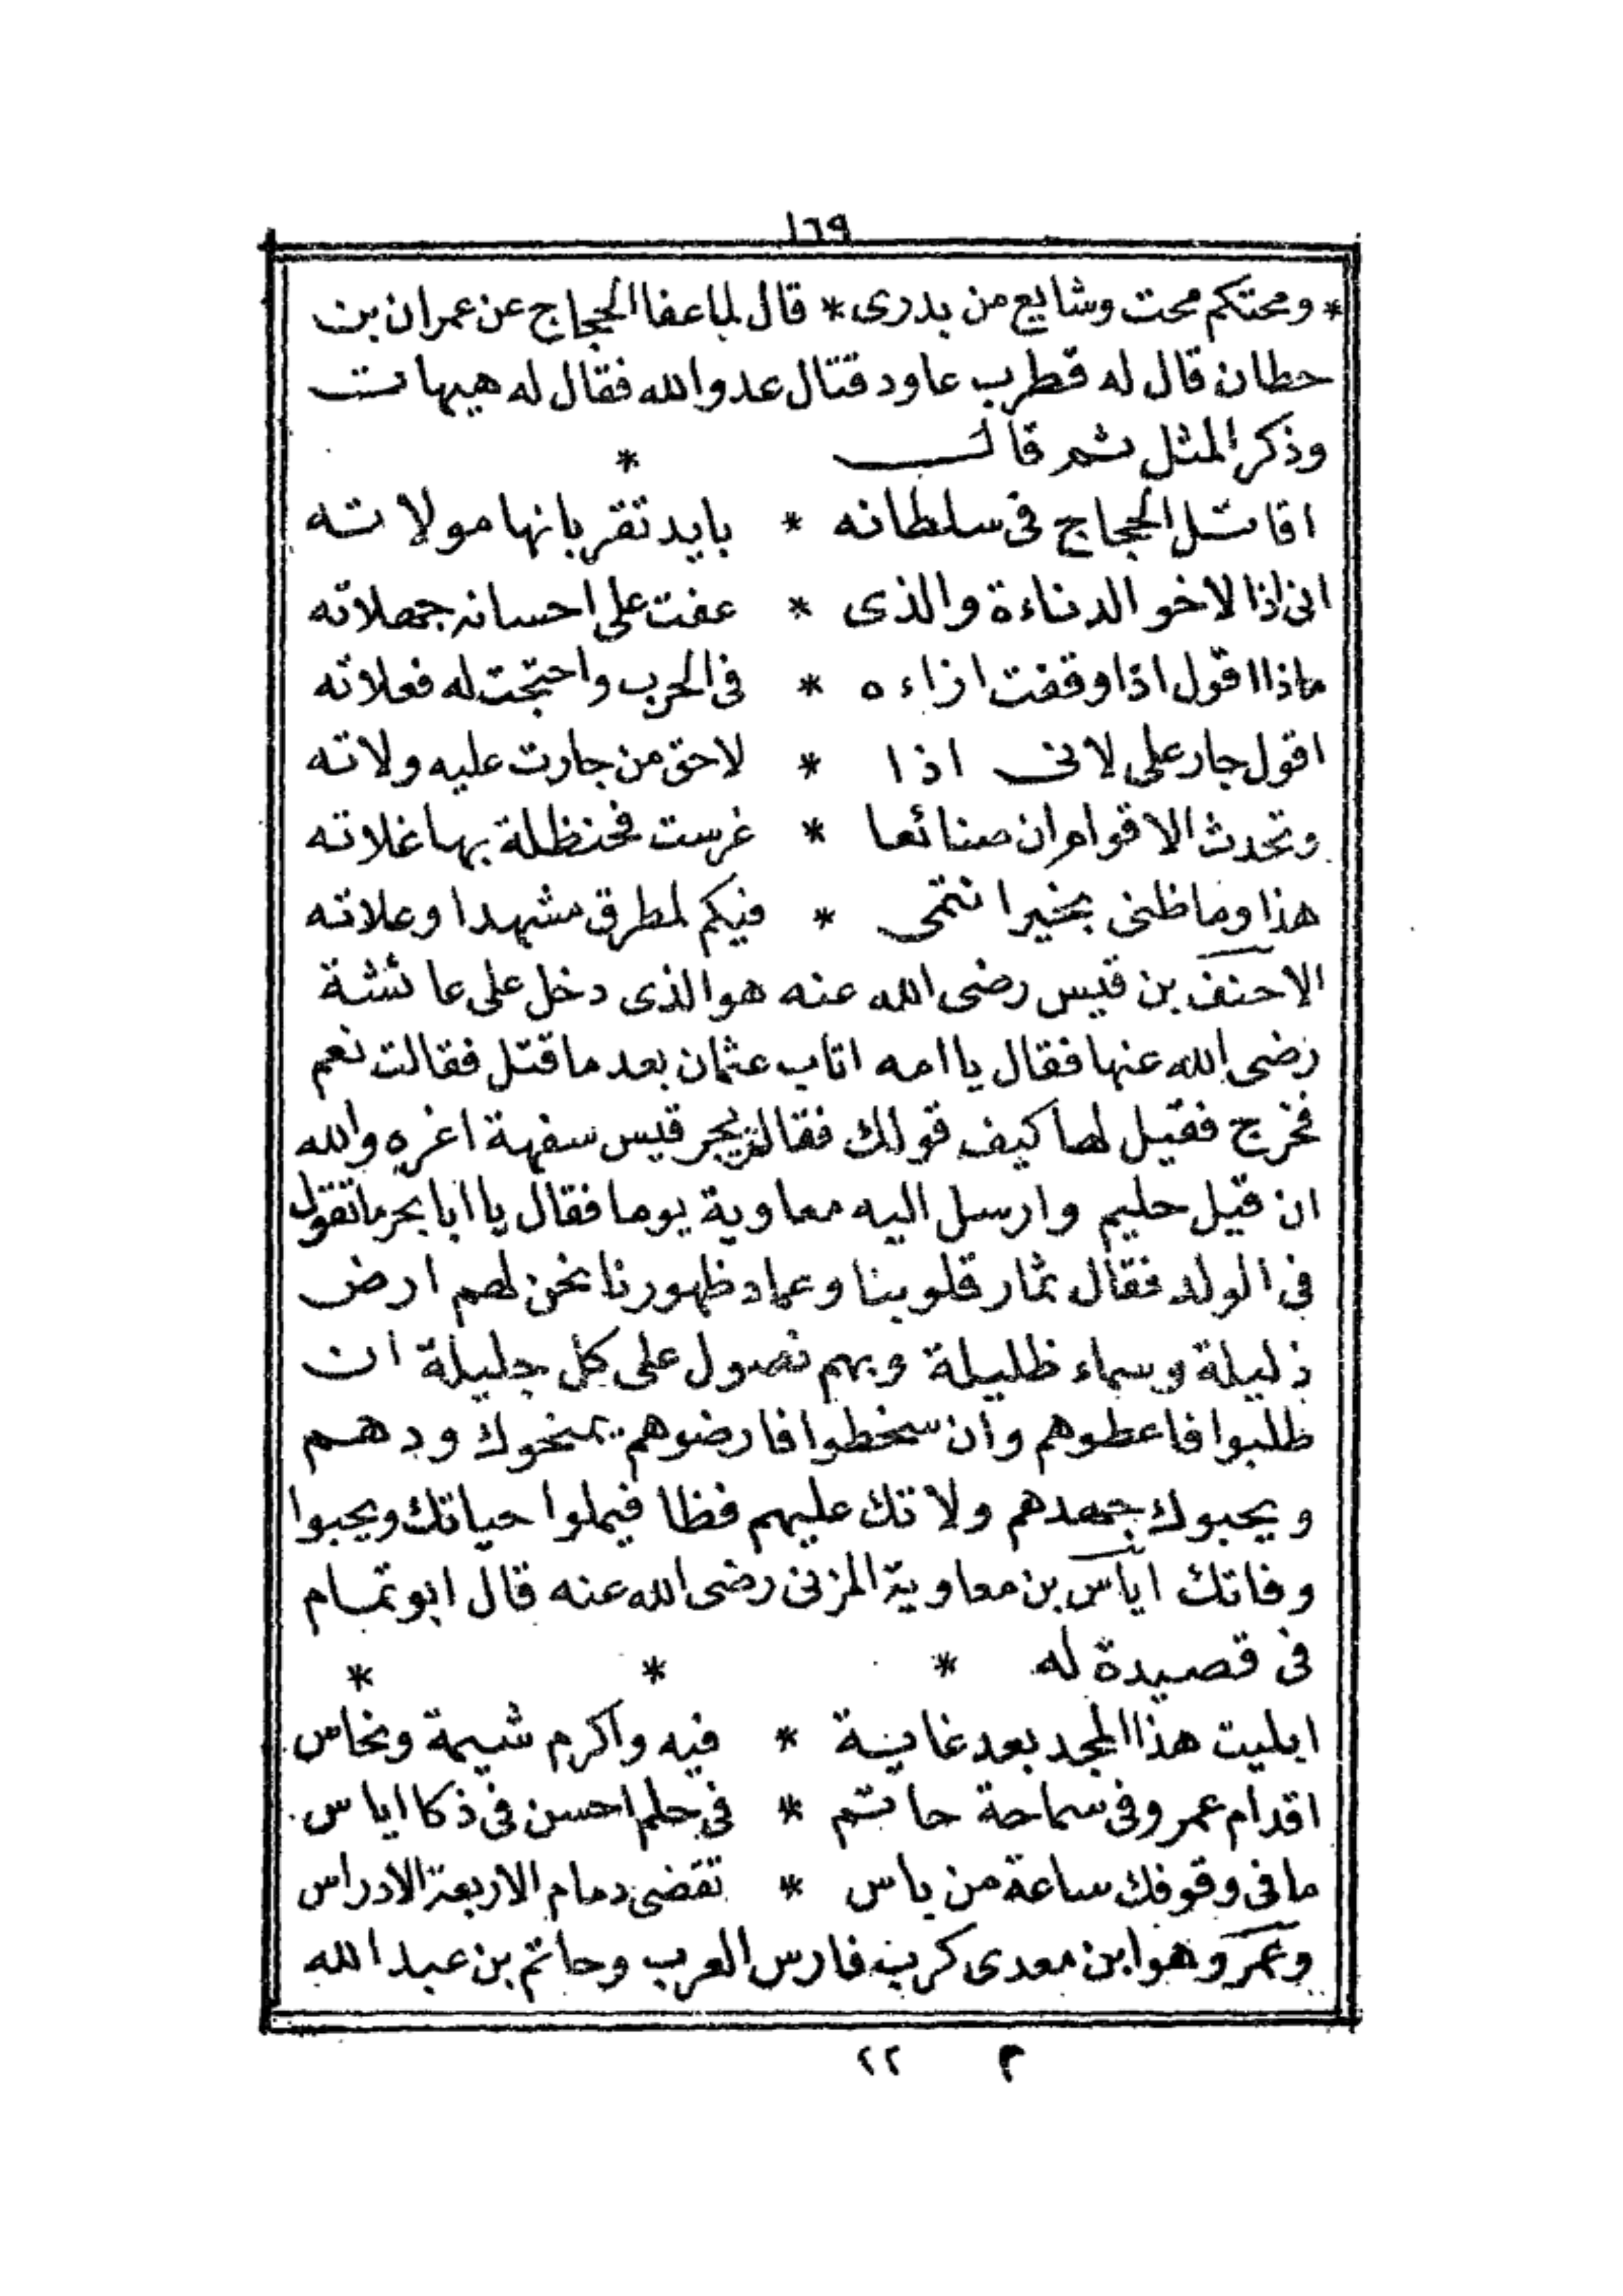 ١٦٩
* ومحتكم محت وشايع من يدرى * قال لما عفا الحجاج عن عمران بن
حطان قال له قطرب عاود قتال عدو الله فقال له هيهات
وذكر المثل ثم قال *
اقاتل الحجاج فى سلطانه * بايد تقر بانها مولاته
انى اذا لاخو الدناءة والذى * عفت على احسانه جهلاته
ماذا اقول اذا وقفت ازاءه * فى الحرب واحتجت له فعلاته
اقول جار على لانى اذا * لاحق من جارت عليه ولاته
وتحدث الاقوام ان صنائعا * غرست فحنظلة بها غلاته
هذا وما ظنى بخير انتمى * فيكم لمطرق مشهدا وعلاته
الاحنف بن قيس رضى الله عنه هو الذى دخل على عائشة
رضى الله عنها فقال يا امه اتاب عثمان بعد ما قتل فقالت نعم
فخرج فقيل لها كيف قولك فقالت يجر قيس سفهة اغره والله
ان قيل حليم وارسل اليه معاوية يوما فقال يا ابا بحر ما تقول
فى الولد فقال ثمار قلوبنا وعماد ظهورنا نحن لهم ارض
ذليلة وسماء ظليلة وبهم نصول على كل جليلة ان
طلبوا فاعطوهم وان سخطوا فارضوهم يمنحوك ودهم
ويحبوك جهدهم ولا تك عليهم فظا فيملوا حياتك ويحبوا
وفاتك اياس بن معاوية المزنى رضى الله عنه قال ابو تمام
فى قصيدة له * * *
ابليت هذا المجد بعد غاية * فيه واكرم شيمة ونحاس
اقدام عمرو فى سماحة حاتم * فى حلم احسن فى ذكا اياس
ما فى وقوفك ساعة من باس * تقضى دمام الاربعة الادراس
وعمرو هو ابن معدى كرب فارس العرب وحاتم بن عبد الله
٢٢ م